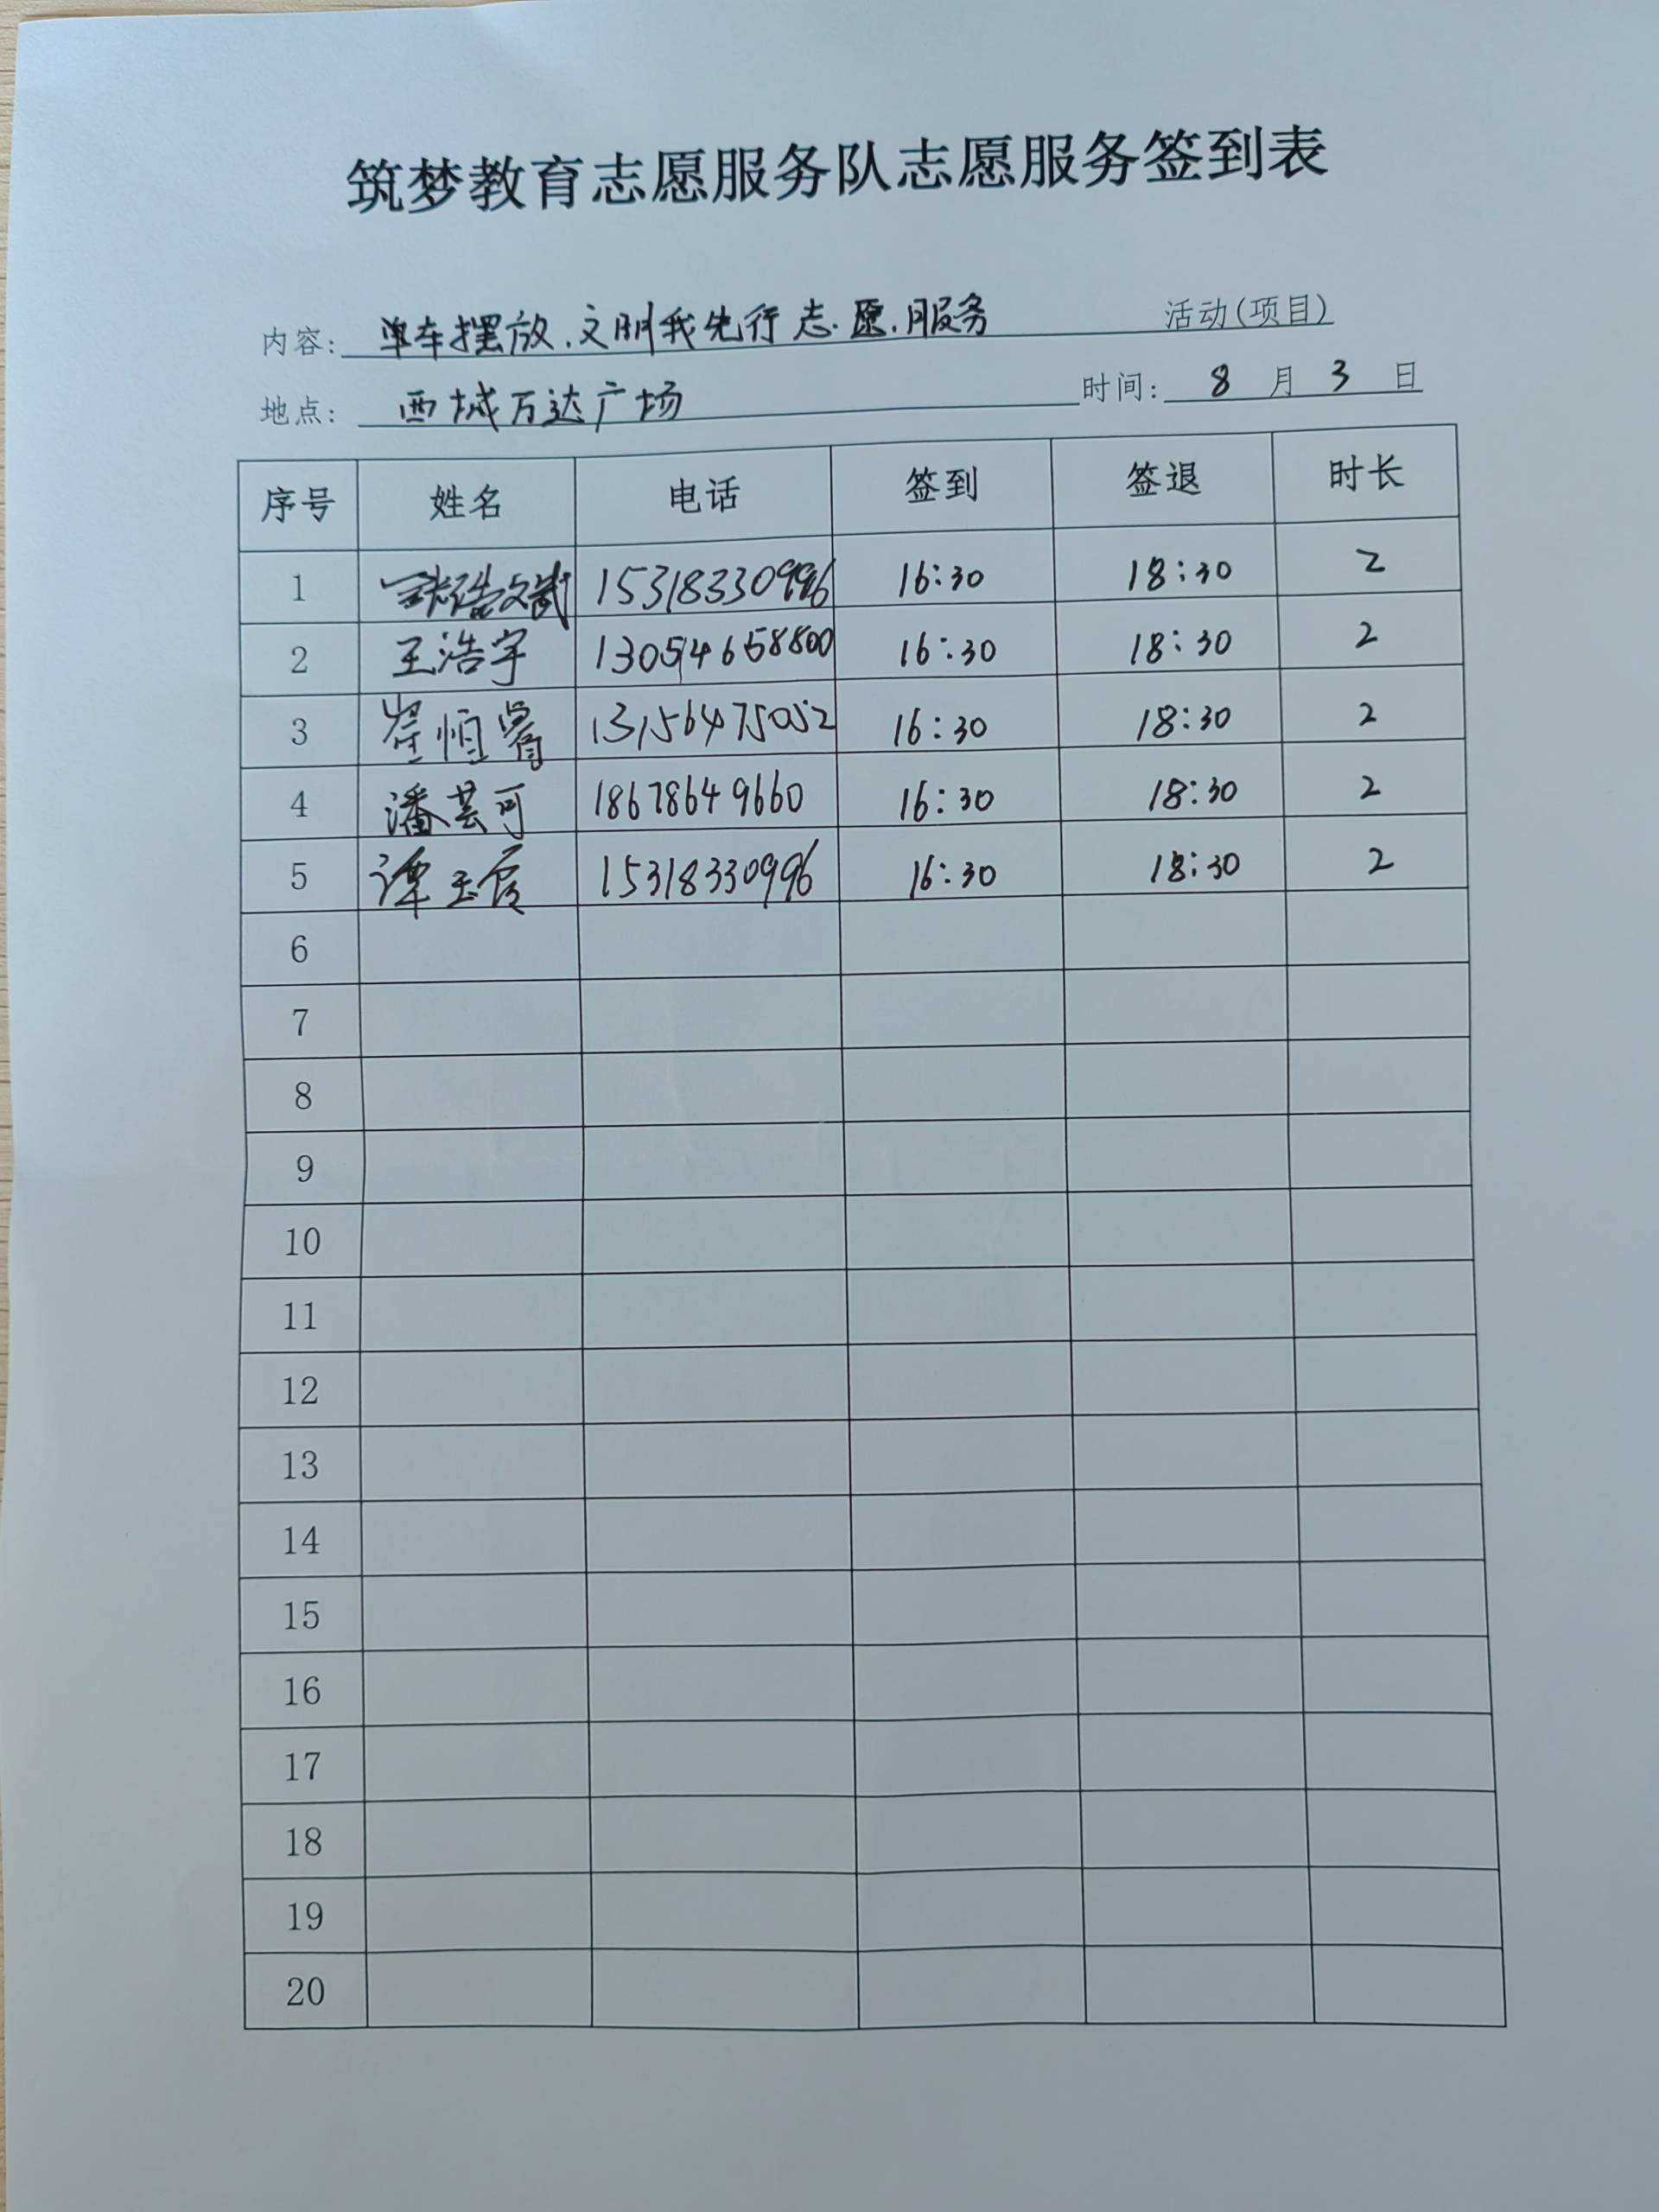 筑梦教育志愿服务队志愿服务签到表
内容: 单车摆放.文明我先行志愿服务 活动(项目)
地点: 西城万达广场 时间: 8 月 3 日
序号 姓名 电话 签到 签退 时长
1 15318330996 16:30 18:30 2
2 王浩宇 13054658800 16:30 18:30 2
3 崔恒睿 13156475052 16:30 18:30 2
4 潘芸可 18678649660 16:30 18:30 2
5 谭玉宸 15318330996 16:30 18:30 2
6
7
8
9
10
11
12
13
14
15
16
17
18
19
20